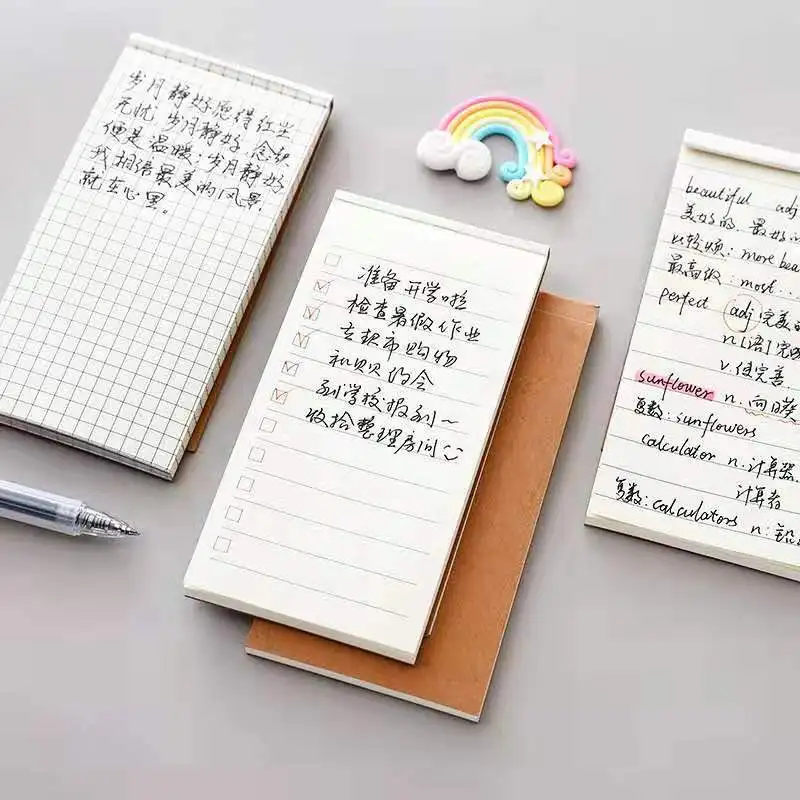 岁月静好愿得红尘
无忧岁月静好,念起
便是温暖;岁月静好
我相信最美的风景,
就在心里。
准备开学啦
检查暑假作业
去超市购物
和贝贝约会
到学校报到~
收拾整理房间
beautiful adj
美好的,最好
比较级:more bea
最高级:most...
perfect adj完美的
n[语]完
v.使完善
sunflower n.向日葵
复数:sunflowers
calculator n.计算器
计算者
复数:calculators n: